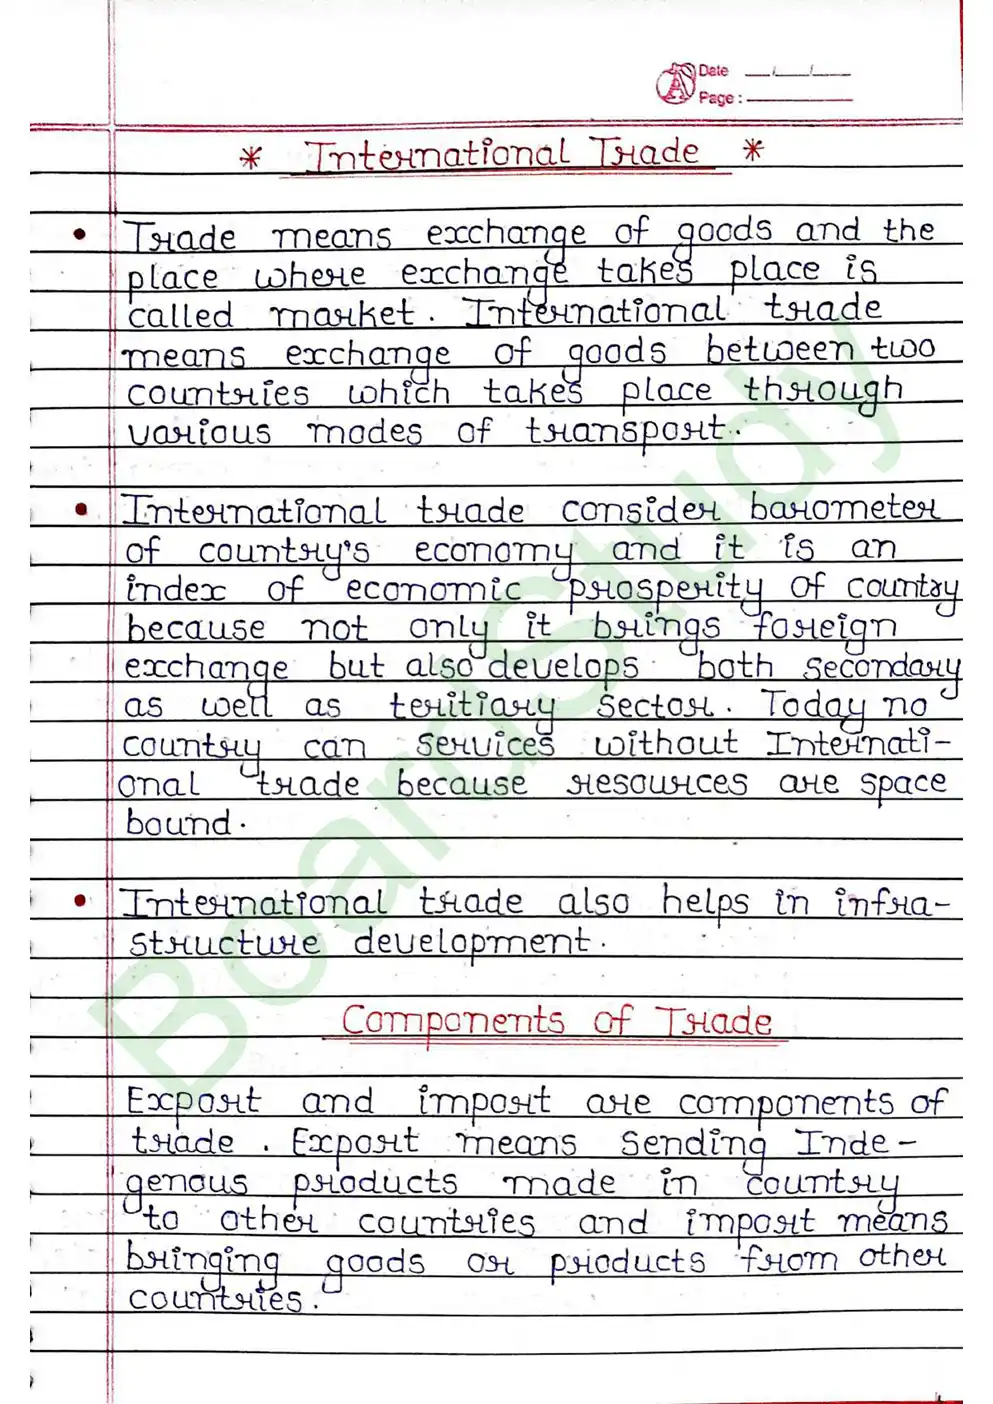 Date __/__/__
Page : ______
* International Trade *
• Trade means exchange of goods and the
place where exchange takes place is
called market. International trade
means exchange of goods between two
countries which takes place through
various modes of transport.
• International trade consider barometer
of country's economy and it is an
index of economic prosperity of country
because not only it brings foreign
exchange but also develops both secondary
as well as teritiary sector. Today no
country can services without Internati-
onal trade because resources are space
bound.
• International trade also helps in infra-
structure development.
Components of Trade
Export and import are components of
trade. Export means sending Inde-
genous products made in country
to other countries and import means
bringing goods or products from other
countries.
BoardStudy